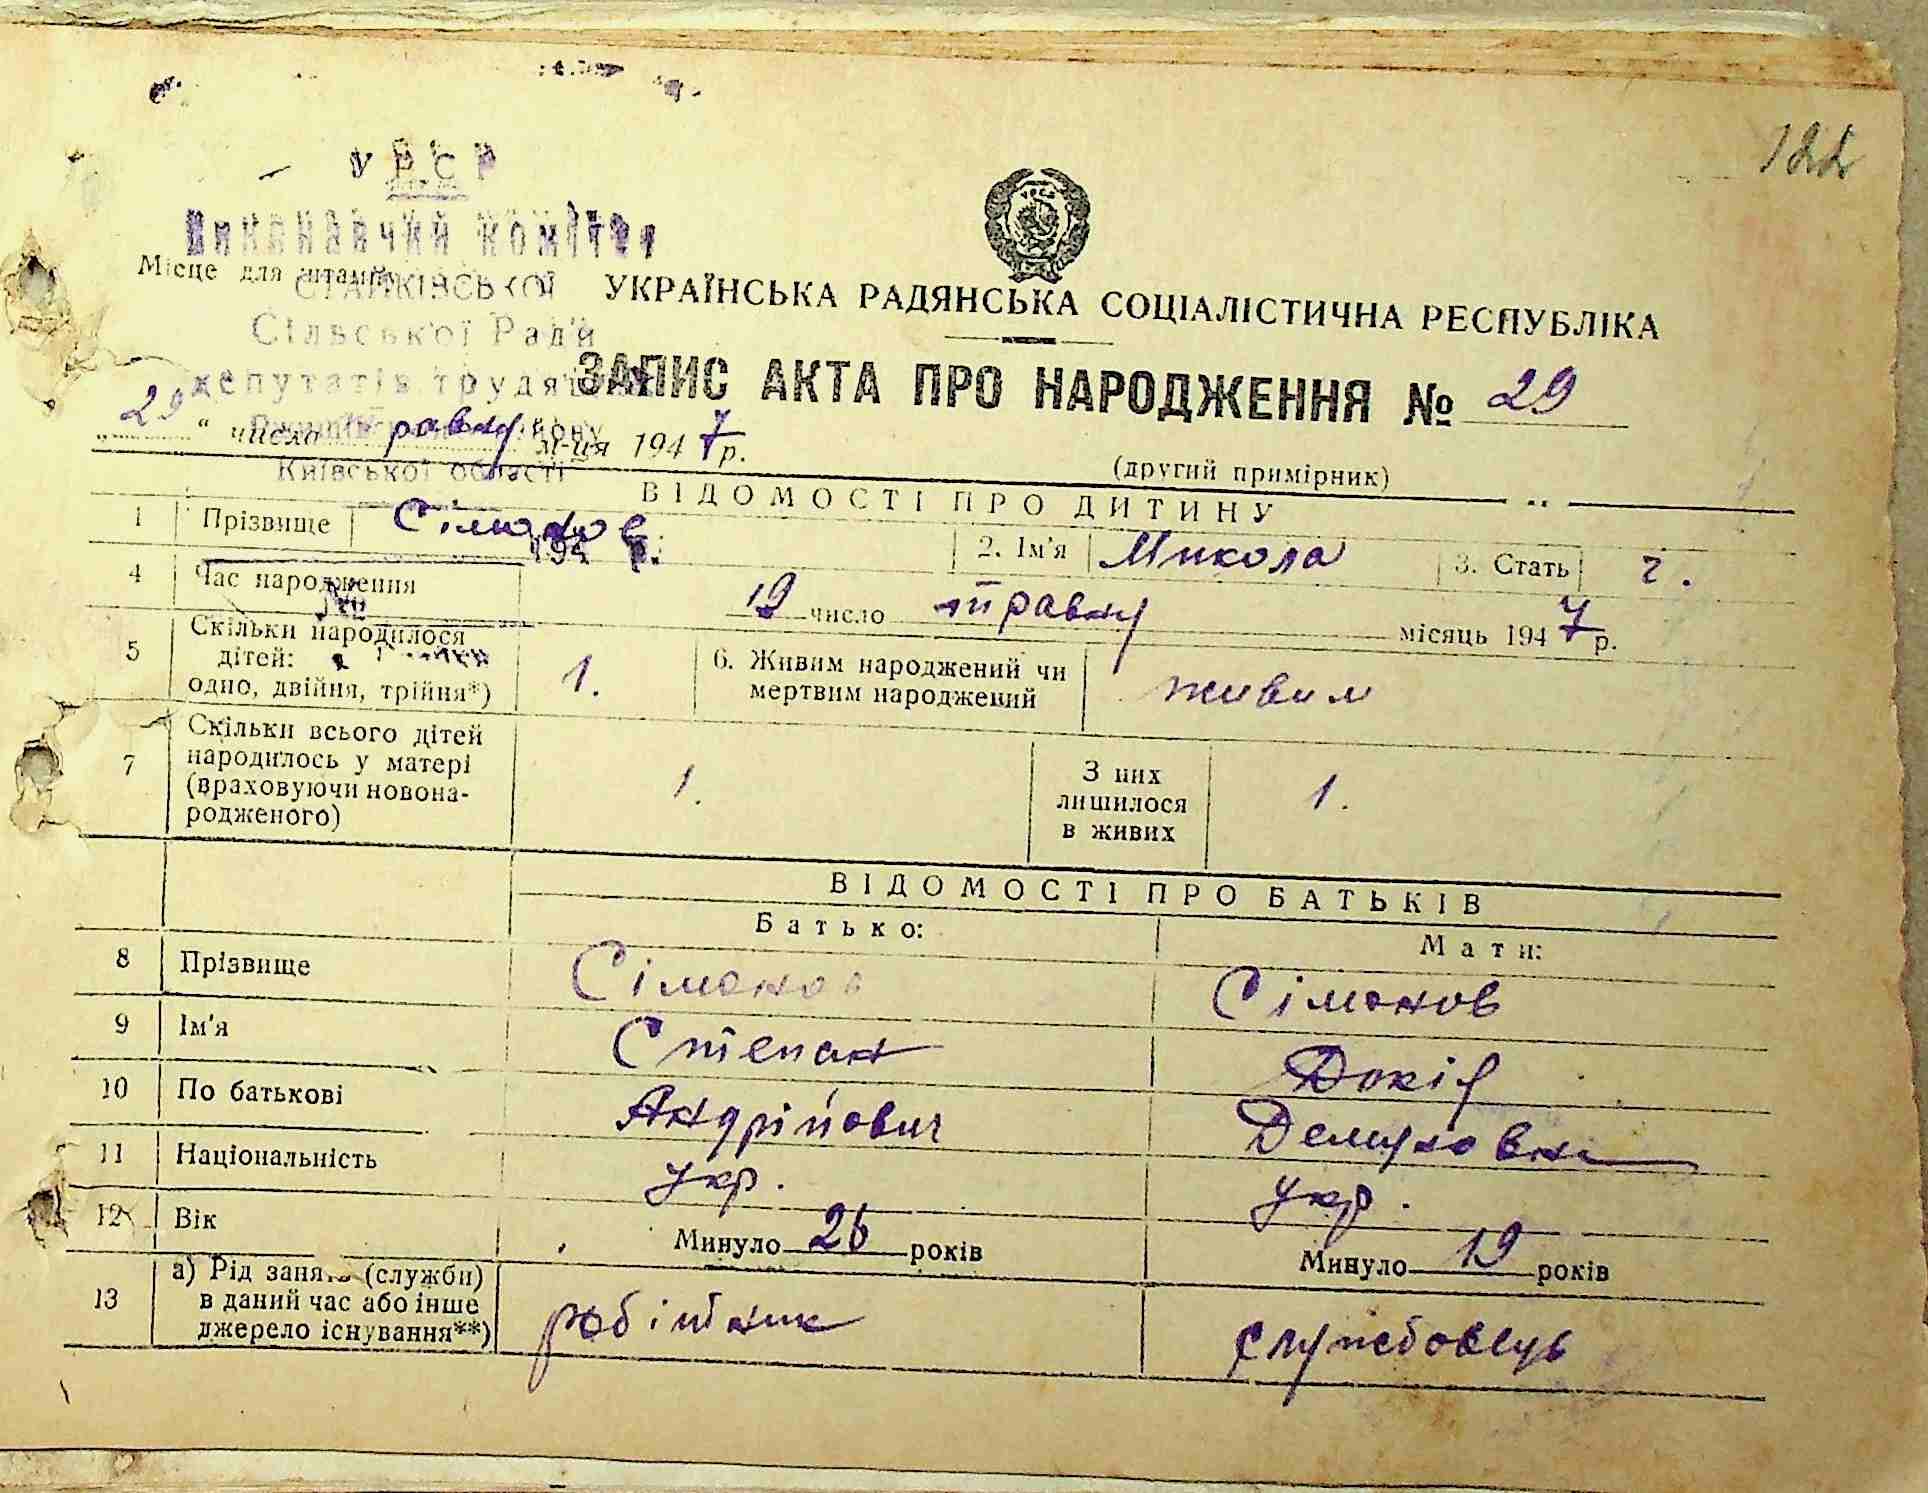 122
УРСР
Виконавчий комітет
Місце для штампу
Сільської Ради
депутатів трудящих
Київської області
УКРАЇНСЬКА РАДЯНСЬКА СОЦІАЛІСТИЧНА РЕСПУБЛІКА
ЗАПИС АКТА ПРО НАРОДЖЕННЯ № 29
„29“ числа травня м-ця 1947 р.
(другий примірник)
ВІДОМОСТІ ПРО ДИТИНУ
1 Прізвище Сімонов 2. Ім'я Микола 3. Стать ч.
194 р.
4 Час народження 19 число травня місяць 1947 р.
№
5 Скільки народилося дітей: одно, двійня, трійня*) 1. 6. Живим народжений чи мертвим народжений живим
7 Скільки всього дітей народилось у матері (враховуючи новонародженого) 1. З них лишилося в живих 1.
ВІДОМОСТІ ПРО БАТЬКІВ
Батько: Мати:
8 Прізвище Сімонов Сімонов
9 Ім'я Степан Докія
10 По батькові Андрійович Демидовна
11 Національність укр. укр.
12 Вік Минуло 26 років Минуло 19 років
13 а) Рід занять (служби) в даний час або інше джерело існування**) робітник службовець